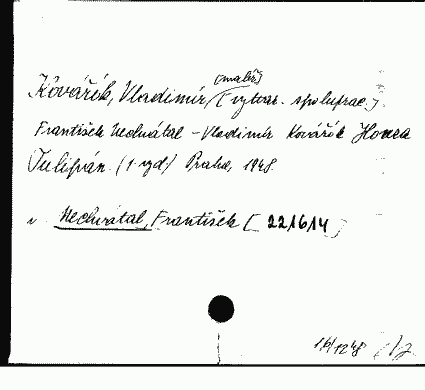 (malíř)
Kovářík, Vladimír, (výtvar. spoluprac.).
František Nechvátal - Vladimír Kovářík Honza
Tulipán. (1. vyd) Praha, 1948.
v Nechvátal, František [221614]
16/1248